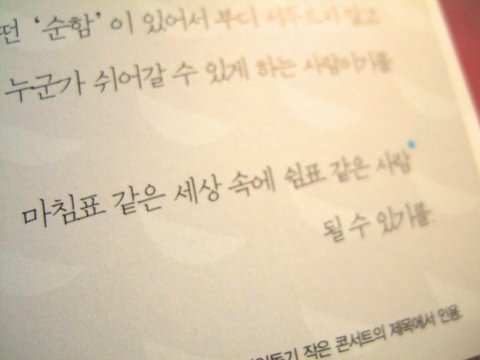 떤 ‘순함’이 있어서 부디 서두르지 말고
누군가 쉬어갈 수 있게 하는 사람이기를
마침표 같은 세상 속에 쉼표 같은 사람
될 수 있기를
작은 콘서트의 제목에서 인용